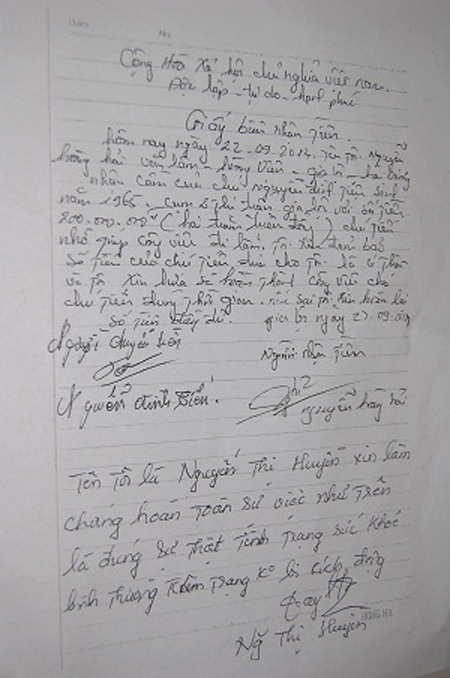 Cộng Hòa Xã hội chủ nghĩa việt nam.
Độc lập - tự do - hạnh phúc
Giấy biên nhận tiền.
hôm nay ngày 22.09.2012. Tên tôi. Nguyễn
hồng hải văn lâm - hưng Yên
nhận cầm của chú nguyễn đình tiến sinh
năm 1965. với số tiền
200.000.000đ (hai trăm triệu đồng) chú tiến
nhờ giúp công việc đi làm, tôi xin đảm bảo
số tiền của chú tiến đưa cho tôi. là
và tôi xin hứa sẽ hoàn thành công việc cho
chú tiến đúng thời gian. nếu sai tôi xin hoàn lại
số tiền đầy đủ. ngày 22.09.2012
Người chuyển tiền
Người nhận tiền
Nguyễn đình tiến.
nguyễn hồng hải
Tên Tôi là Nguyễn Thị Huyền xin làm
chứng hoàn toàn sự việc như trên
là đúng sự thật tình trạng sức khỏe
bình thường tâm trạng ko bị kích động
Ng Thị Huyền
HONG HA